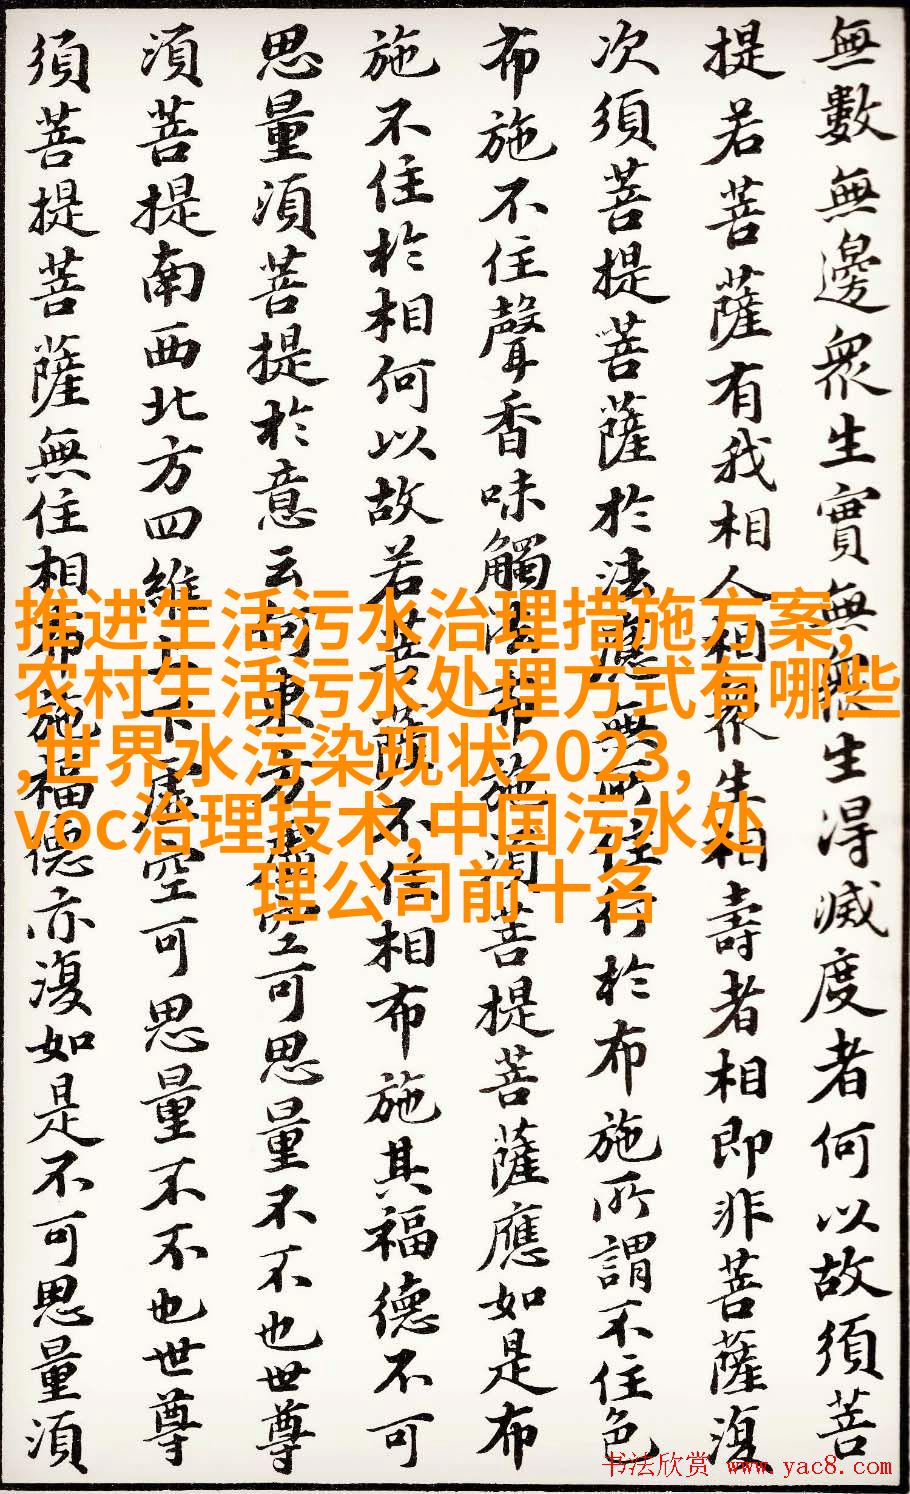 無數無邊衆生實無衆生得滅度者何以故須菩
提若菩薩有我相人相衆生相壽者相即非菩薩復
次須菩提菩薩於法應無所住行於布施所謂不住色
布施不住聲香味觸法布施須菩提菩薩應如是布
施不住於相何以故若菩薩不住相布施其福德不可
思量須菩提於意云何東方虛空可思量不不也世尊
須菩提南西北方四維上下虛空可思量不不也世尊
須菩提菩薩無住相布施福德亦復如是不可思量須
推进生活污水治理措施方案,
农村生活污水处理方式有哪些
,世界水污染现状2023,
voc治理技术,中国污水处
理公司前十名
书法欣赏 www.yac8.com